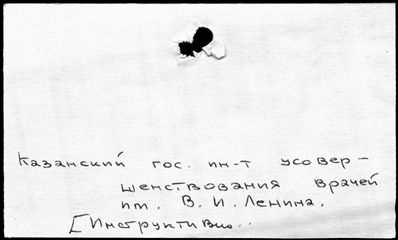 Казанский гос. ин-т усовер-
шенствования врачей
им. В. И. Ленина.
[Инструктивно..